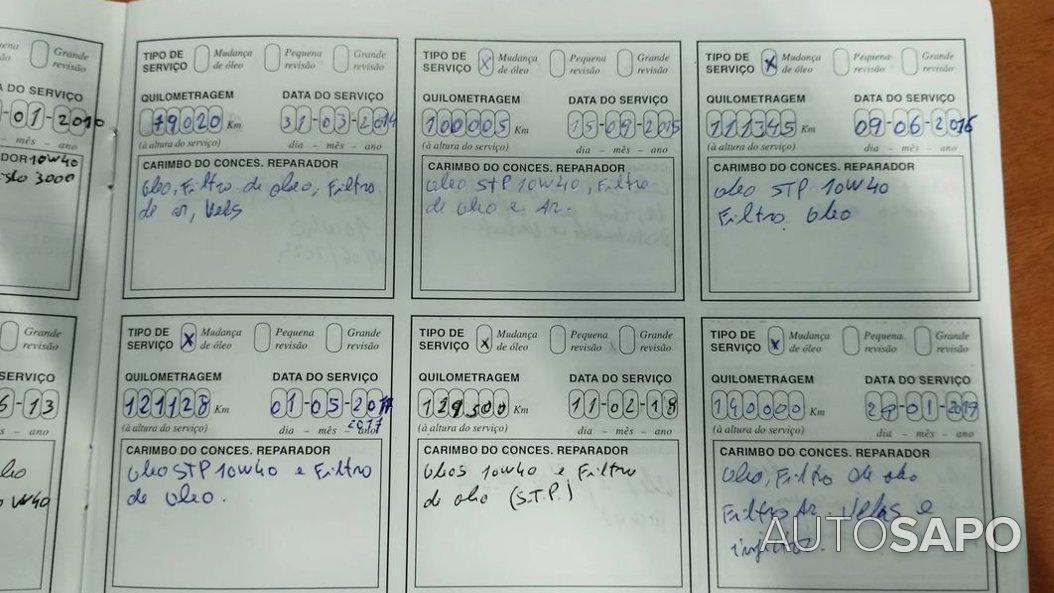 Grande
revisão
DO SERVIÇO
-01-2010
mês - ano
10W40
3000
TIPO DE SERVIÇO Mudança de óleo Pequena revisão Grande revisão
QUILOMETRAGEM DATA DO SERVIÇO
79020 Km 31-03-2014
(à altura do serviço) dia - mês - ano
CARIMBO DO CONCES. REPARADOR
oleo, Filtro de oleo, Filtro
de ar, Vels
TIPO DE SERVIÇO x Mudança de óleo Pequena revisão Grande revisão
QUILOMETRAGEM DATA DO SERVIÇO
100005 Km 15-09-2015
(à altura do serviço) dia - mês - ano
CARIMBO DO CONCES. REPARADOR
oleo STP 10W40, Filtro
de oleo e Ar.
TIPO DE SERVIÇO x Mudança de óleo Pequena revisão Grande revisão
QUILOMETRAGEM DATA DO SERVIÇO
111345 Km 09-06-2016
(à altura do serviço) dia - mês - ano
CARIMBO DO CONCES. REPARADOR
oleo STP 10W40
Filtro oleo
Grande
revisão
SERVIÇO
6-13
s - ano
TIPO DE SERVIÇO x Mudança de óleo Pequena revisão Grande revisão
QUILOMETRAGEM DATA DO SERVIÇO
121128 Km 01-05-2017
(à altura do serviço) dia - mês - ano
2017
CARIMBO DO CONCES. REPARADOR
oleo STP 10W40 e Filtro
de oleo.
TIPO DE SERVIÇO x Mudança de óleo Pequena revisão Grande revisão
QUILOMETRAGEM DATA DO SERVIÇO
129300 Km 11-02-18
(à altura do serviço) dia - mês - ano
CARIMBO DO CONCES. REPARADOR
oleos 10W40 e Filtro
de oleo (S.T.P.)
TIPO DE SERVIÇO x Mudança de óleo Pequena revisão Grande revisão
QUILOMETRAGEM DATA DO SERVIÇO
140000 Km -01-2019
(à altura do serviço) dia - mês - ano
CARIMBO DO CONCES. REPARADOR
oleo, Filtro de oleo
Filtro Ar. Velas e
AUTOSAPO